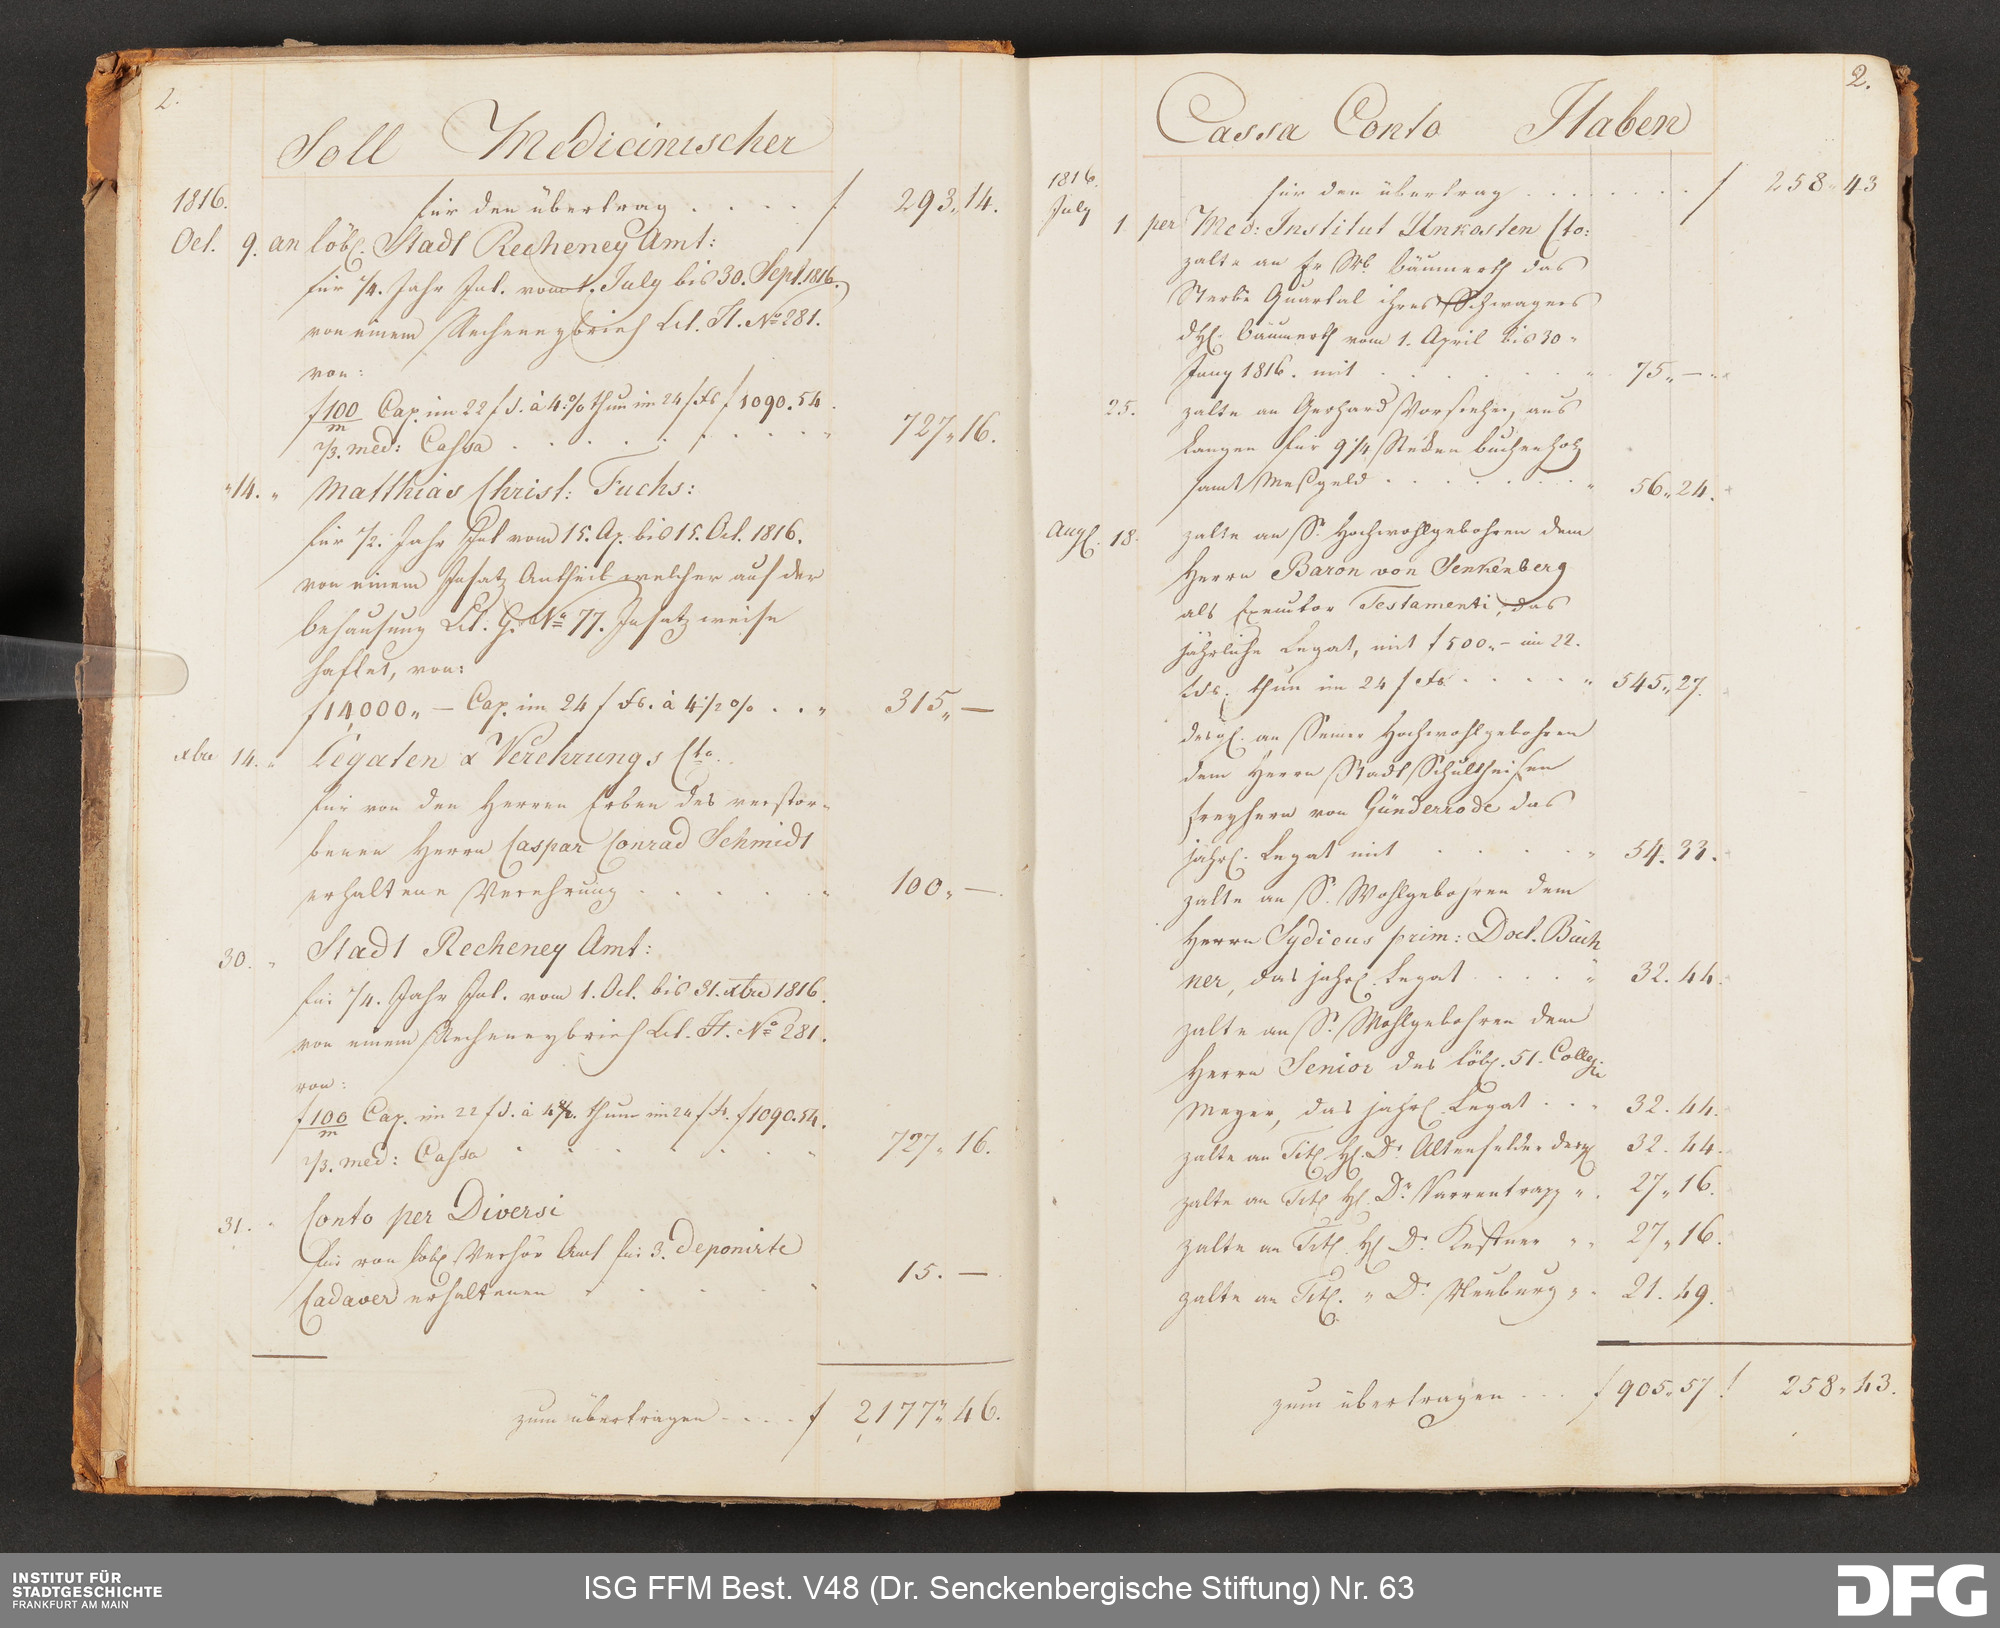 2.
Soll Medicinischer
1816. für den übertrag . . . . . f 293„14.
Oct. 9. an löbl. Stadt Recheney Amt:
für 1/4. Jahr Int. vom 1. July bis 30. Sept. 1816.
von einem Recheneybrief Lit. H. No 281.
von:
f 100/m Cap. im 22 f s. à 4.% thun im 24 f Fs f 1090.54.
1/3. med: Cassa . . . . . . . . . „ 727„16.
„14. „ Matthias Christ: Fuchs:
für 1/2. Jahr Int vom 15. Ap. bis 15. Oct. 1816.
von einem Insatz Antheil welcher auf der
behausung Lit. G. No 77. Insatz weise
haftet, von:
f 14,000„ — Cap. im 24 f Fs. à 4 1/2 % . . „ 315„ —
xbre 14. „ Legaten & Verehrungs Cto.
für von den Herren Erben des verstor-
benen Herrn Caspar Conrad Schmidt
erhaltene Verehrung . . . . . „ 100„ —.
30. „ Stadt Recheney Amt:
für 1/4. Jahr Int. vom 1. Oct. bis 31. xbre 1816.
von einem Recheneybrief Lit. H. No 281.
von:
f 100/m Cap. im 22 f s. à 4%. thun im 24 f Fs. f 1090.54.
1/3. med: Cassa „ 727„ 16.
31. „ Conto per Diversi
für von löbl. Verhör Amt für 3. deponirte
Cadaver erhaltenen 15. —
zum übertragen . . . . f 2,177„ 46.
2.
Cassa Conto Haben
1816. für den übertrag . . . . . . . f 258„43
July 1. per Med: Institut Unkosten Cto:
zalte an Fr Bäumerth das
Sterbe Quartal ihres Schwagers
Bäumerth vom 1. April bis 30„
Juny 1816. mit . . . . . . „ 75„ —
25. zalte an Gerhard Vorsteher, aus
Langen für 9 1/4 Stecken buchenholz
samt Meßgeld . . . . . . . „ 56„24.
Augl. 18. zalte an Sr. Hochwohlgebohren dem
Herrn Baron von Senkenberg
als Executor Testamenti, das
jährliche Legat, mit f 500„ — im 22.
thun im 24 f Fs. . . . . „ 545„27.
desgl. an Seiner Hochwohlgebohren
dem Herrn Stadt Schultheisen
Freyherrn von Günderrode das
jährl. Legat mit . . . . . „ 54. 33.
zalte an Sr. Wohlgebohren dem
Herrn Sydicus prim: Doct. Büch
ner, das jährl. Legat . . . . „ 32. 44.
zalte an Sr. Wohlgebohren dem
Herrn Senior des löbl. 51. Colleg:
Meyer, das jährl. Legat . . „ 32. 44.
zalte an Titl. Hl. Dr. Altenfelder desgl 32. 44.
zalte an Titl. Hl. Dr. Varrentrapp „ . 27„ 16.
zalte an Titl. Hl Dr. Kestner „ „ 27„ 16.
zalte an Titl. „ Dr. Neuburg „ „ 21. 49.
zum übertragen . . . f 905„57 f 258„43.
INSTITUT FÜR
STADTGESCHICHTE
FRANKFURT AM MAIN
ISG FFM Best. V48 (Dr. Senckenbergische Stiftung) Nr. 63
DFG